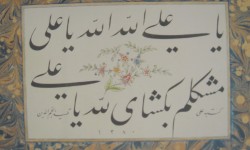 یا علی الله الله یا علی
مشکلم بکشای لله یا علی